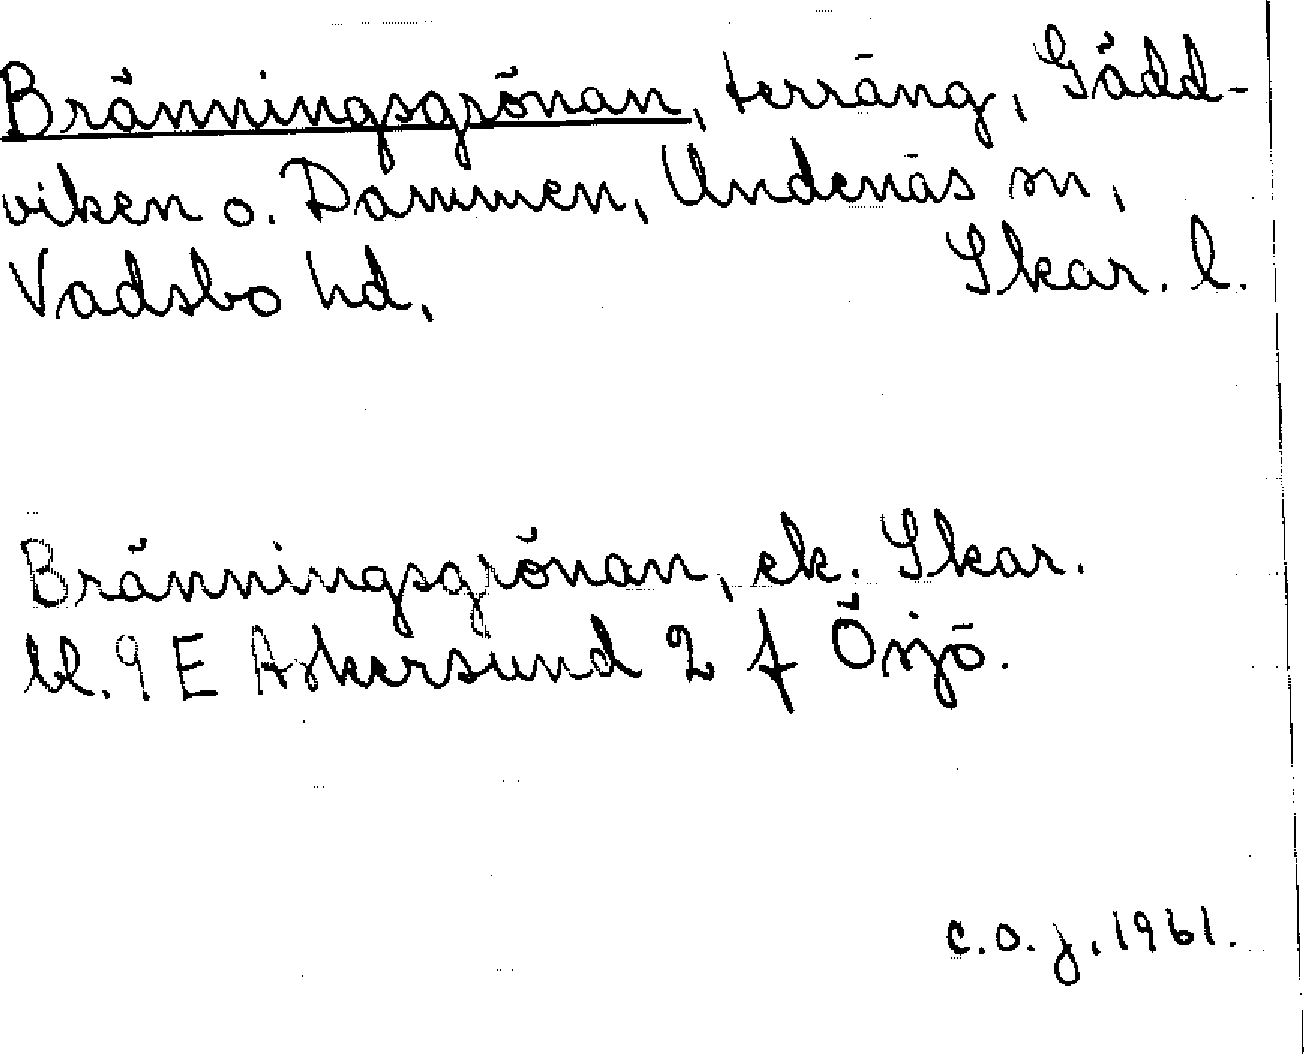 Bränningsgrönan, terräng, Gädd-
viken o. Dammen, Undenäs sn,
Vadsbo hd. Skar. l.
Bränningsgrönan, ek. Skar.
bl. 9 E Askersund 2 f Örsjö.
C.O.J. 1961.